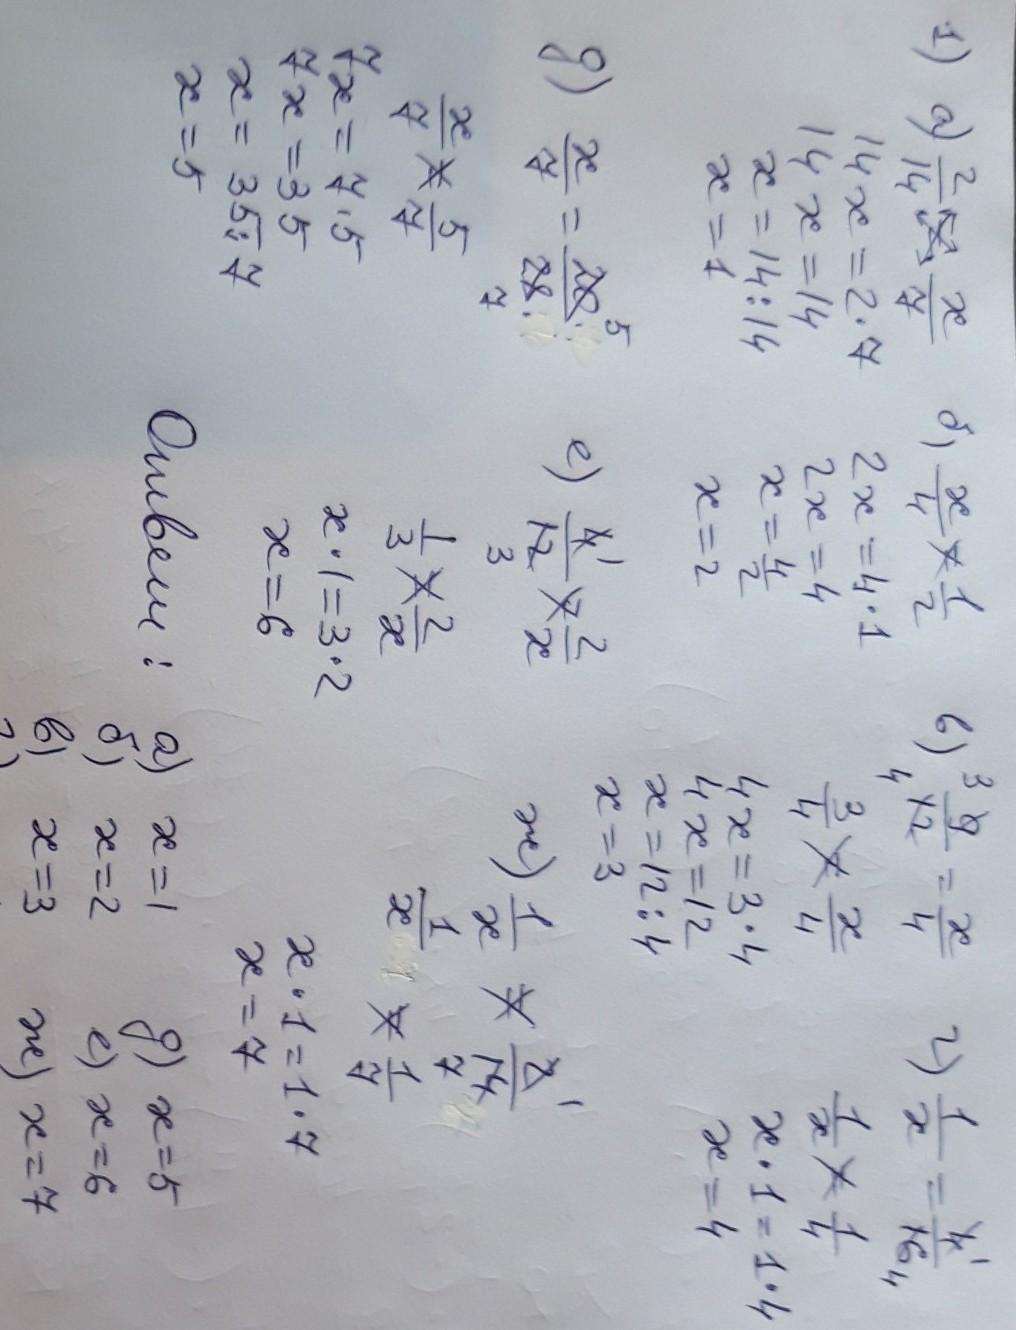 1) а) 2/14 = x/7
14x = 2·7
14x = 14
x = 14:14
x = 1
б) x/4 = 1/2
2x = 4·1
2x = 4
x = 4/2
x = 2
в) 9/12 = x/4
3 4
3/4 = x/4
4x = 3·4
4x = 12
x = 12:4
x = 3
г) 1/x = 4/16
1 4
1/x = 1/4
x·1 = 1·4
x = 4
д) x/7 = 20/28
5 7
x/7 = 5/7
7x = 7·5
7x = 35
x = 35:7
x = 5
е) 4/12 = 2/x
1 3
1/3 = 2/x
x·1 = 3·2
x = 6
ж) 1/x = 2/14
1 7
1/x = 1/7
x·1 = 1·7
x = 7
Ответ:
а) x = 1
б) x = 2
в) x = 3
г)
д) x = 5
е) x = 6
ж) x = 7